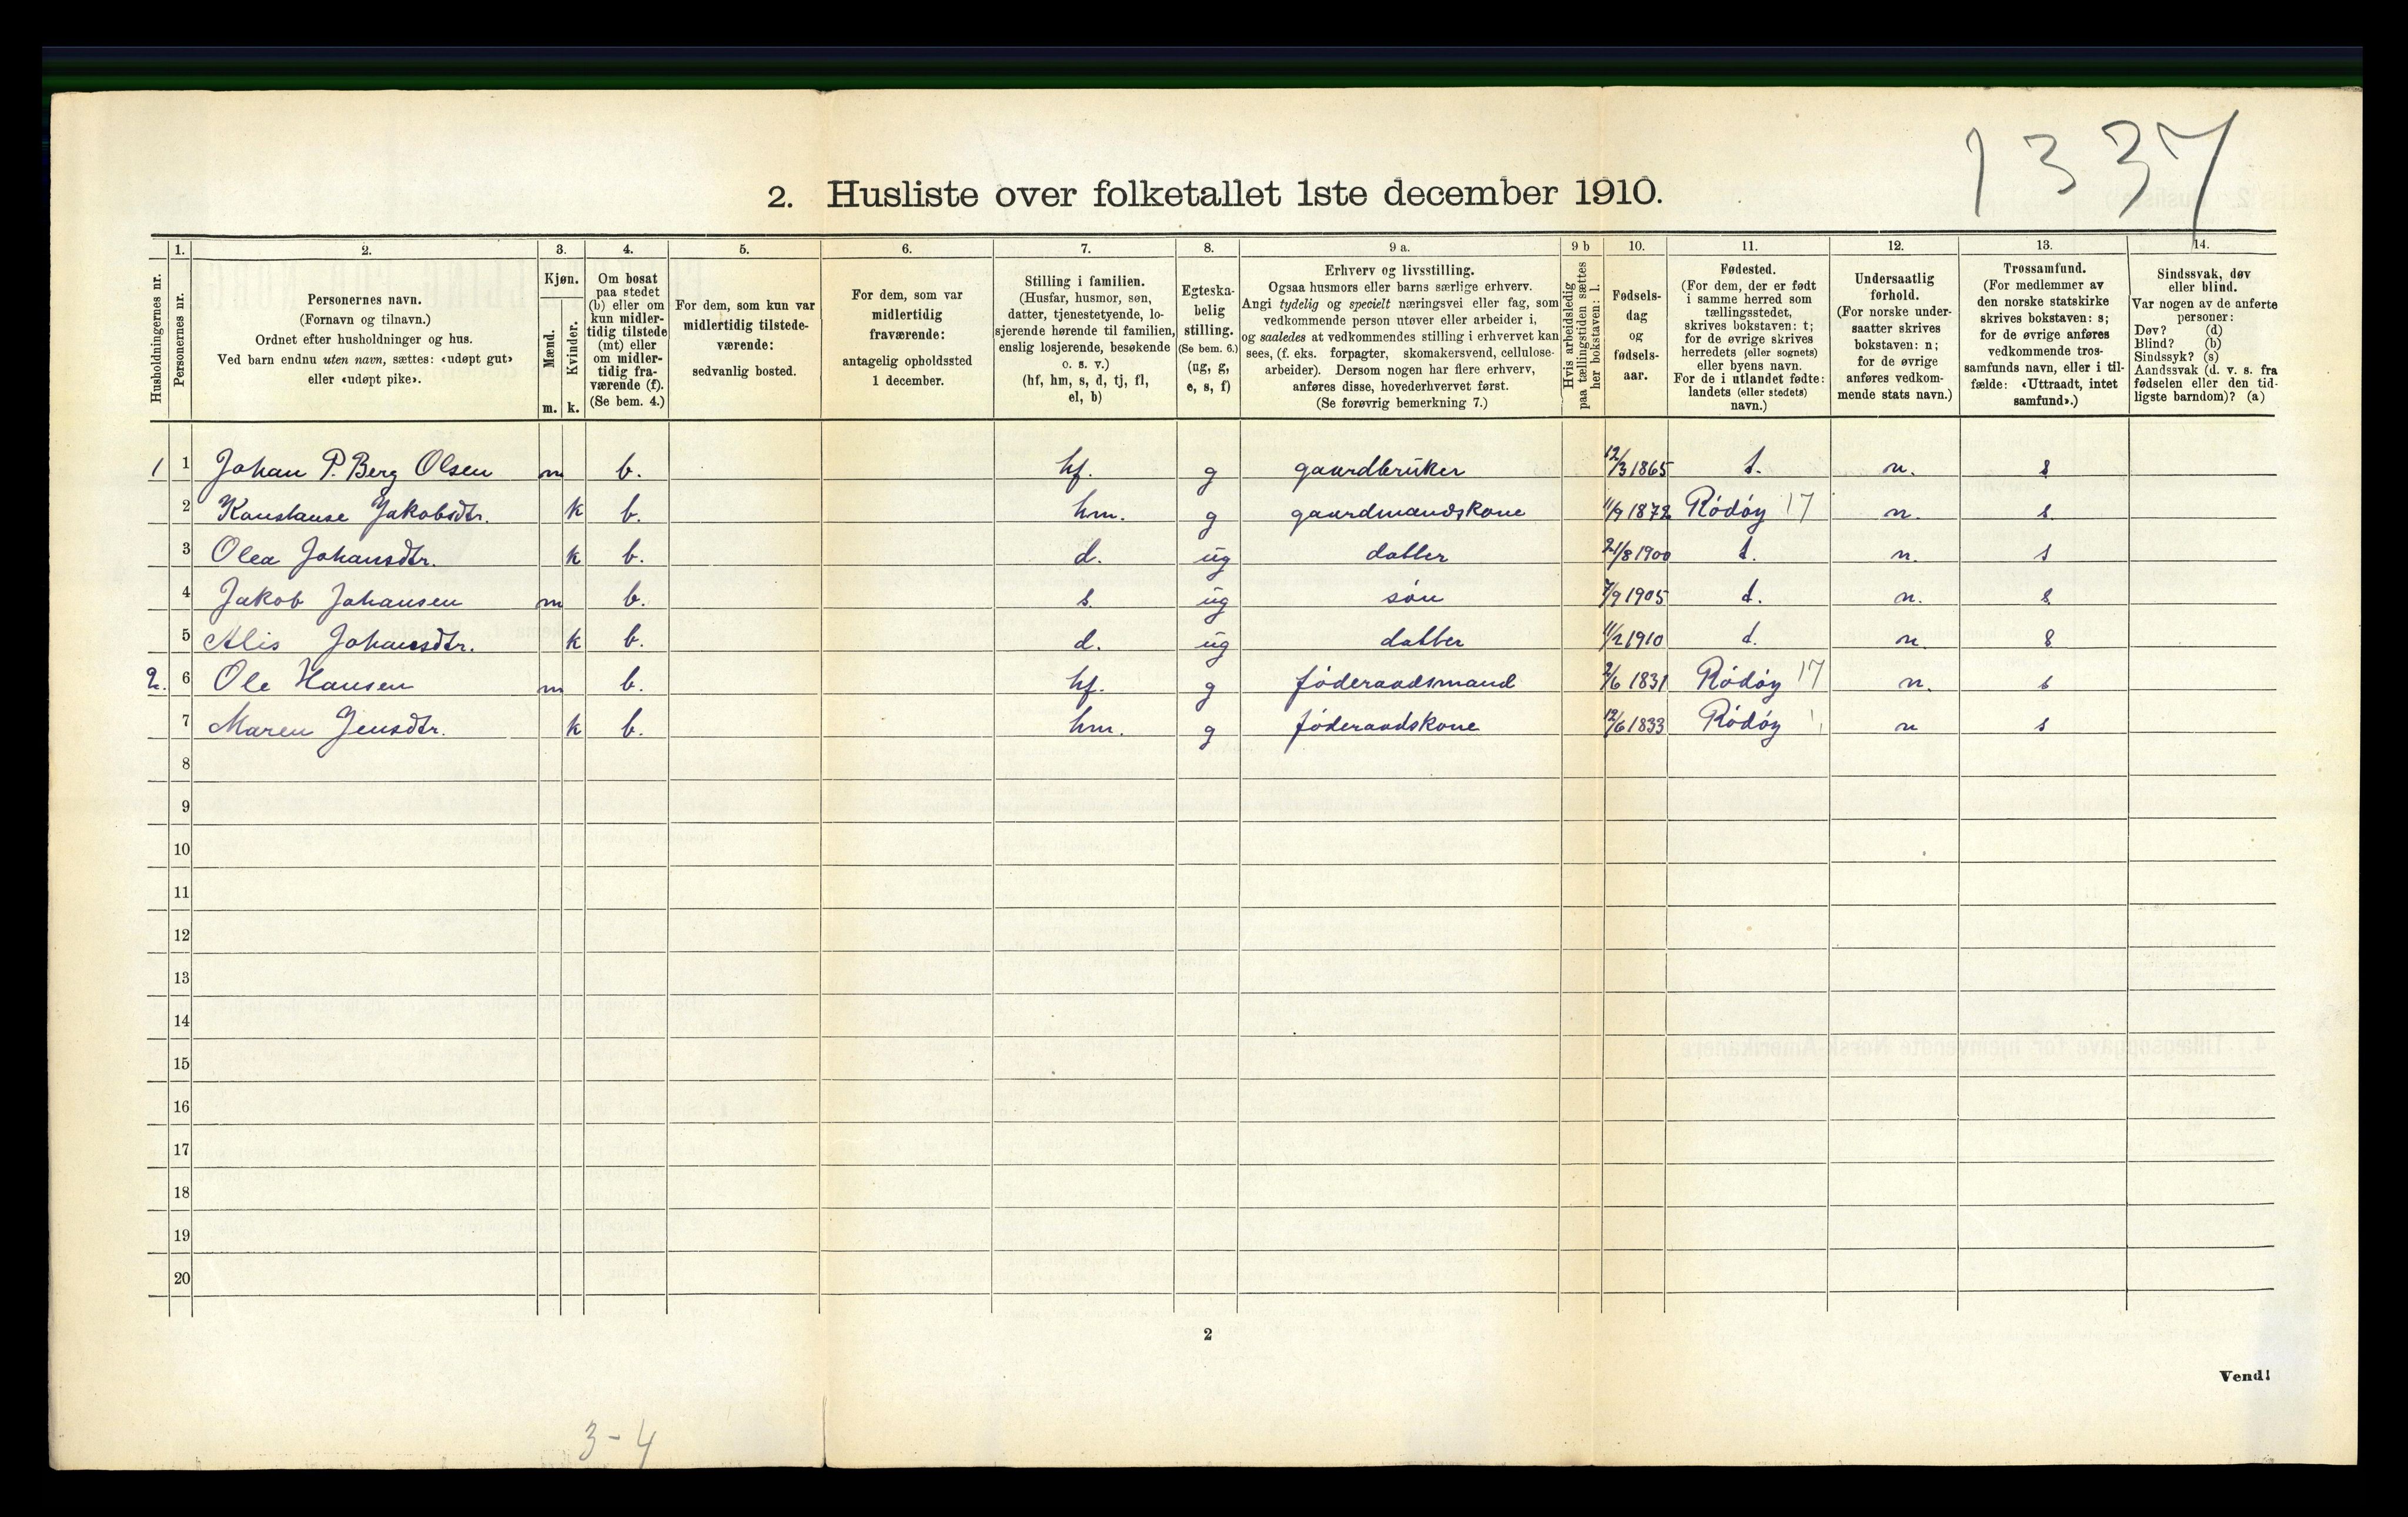 1337
2. Husliste over folketallet 1ste december 1910.
Husholdningernes nr.
1.
Personernes nr.
2.
Personernes navn.
(Fornavn og tilnavn.)
Ordnet efter husholdninger og hus.
Ved barn endnu uten navn, sættes: «udøpt gut»
eller «udøpt pike».
3.
Kjøn.
Mænd.
Kvinder.
m. k.
4.
Om bosat
paa stedet
(b) eller om
kun midler-
tidig tilstede
(mt) eller
om midler-
tidig fra-
værende (f).
(Se bem. 4.)
5.
For dem, som kun var
midlertidig tilstede-
værende:
sedvanlig bosted.
6.
For dem, som var
midlertidig
fraværende:
antagelig opholdssted
1 december.
7.
Stilling i familien.
(Husfar, husmor, søn,
datter, tjenestetyende, lo-
sjerende hørende til familien,
enslig losjerende, besøkende
o. s. v.)
(hf, hm, s, d, tj, fl,
el, b)
8.
Egteska-
belig
stilling.
(Se bem. 6.)
(ug, g,
e, s, f)
9 a.
Erhverv og livsstilling.
Ogsaa husmors eller barns særlige erhverv.
Angi tydelig og specielt næringsvei eller fag, som
vedkommende person utøver eller arbeider i,
og saaledes at vedkommendes stilling i erhvervet kan
sees, (f. eks. forpagter, skomakersvend, cellulose-
arbeider). Dersom nogen har flere erhverv,
anføres disse, hovederhvervet først.
(Se forøvrig bemerkning 7.)
9 b
Hvis arbeidsledig
paa tællingstiden sættes
her bokstaven: l.
10.
Fødsels-
dag
og
fødsels-
aar.
11.
Fødested.
(For dem, der er født
i samme herred som
tællingsstedet,
skrives bokstaven: t;
for de øvrige skrives
herredets (eller sognets)
eller byens navn.
For de i utlandet fødte:
landets (eller stedets)
navn.)
12.
Undersaatlig
forhold.
(For norske under-
saatter skrives
bokstaven: n;
for de øvrige
anføres vedkom-
mende stats navn.)
13.
Trossamfund.
(For medlemmer av
den norske statskirke
skrives bokstaven: s;
for de øvrige anføres
vedkommende tros-
samfunds navn, eller i til-
fælde: «Uttraadt, intet
samfund».)
14.
Sindssvak, døv
eller blind.
Var nogen av de anførte
personer:
Døv? (d)
Blind? (b)
Sindssyk? (s)
Aandssvak (d. v. s. fra
fødselen eller den tid-
ligste barndom)? (a)
1 1 Johan P. Berg Olsen m b. hf. g gaardbruker 12/3 1865 t. n. s
2 Konstanse Jakobsdtr. k b. hm. g gaardmandskone 11/9 1872 Rödöy 17 n. s
3 Olea Johansdtr. k b. d. ug datter 21/8 1900 t. n. s
4 Jakob Johansen m b. s. ug sön 7/9 1905 t. n. s
5 Alis Johansdtr. k b. d. ug datter 11/2 1910 t. n. s
2. 6 Ole Hansen m b. hf. g föderaadsmand 2/6 1831 Rödöy 17 n. s
7 Maren Jensdtr. k b. hm. g föderaadskone 12/6 1833 Rödöy n s
8
9
10
11
12
13
14
15
16
17
18
19
20
2
Vend!
3-4